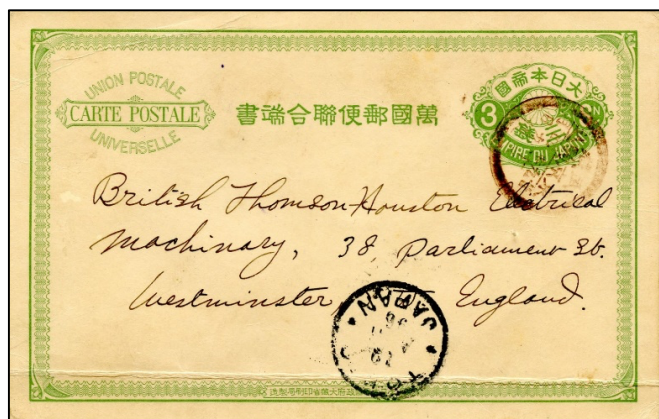 UNION POSTALE
CARTE POSTALE
UNIVERSELLE
書端合聯便郵國萬
國帝本日大
3
EMPIRE DU JAPON
British Thomson-Houston Electrical
Machinary, 38, Parliament St.
Westminster, England.
JAPAN